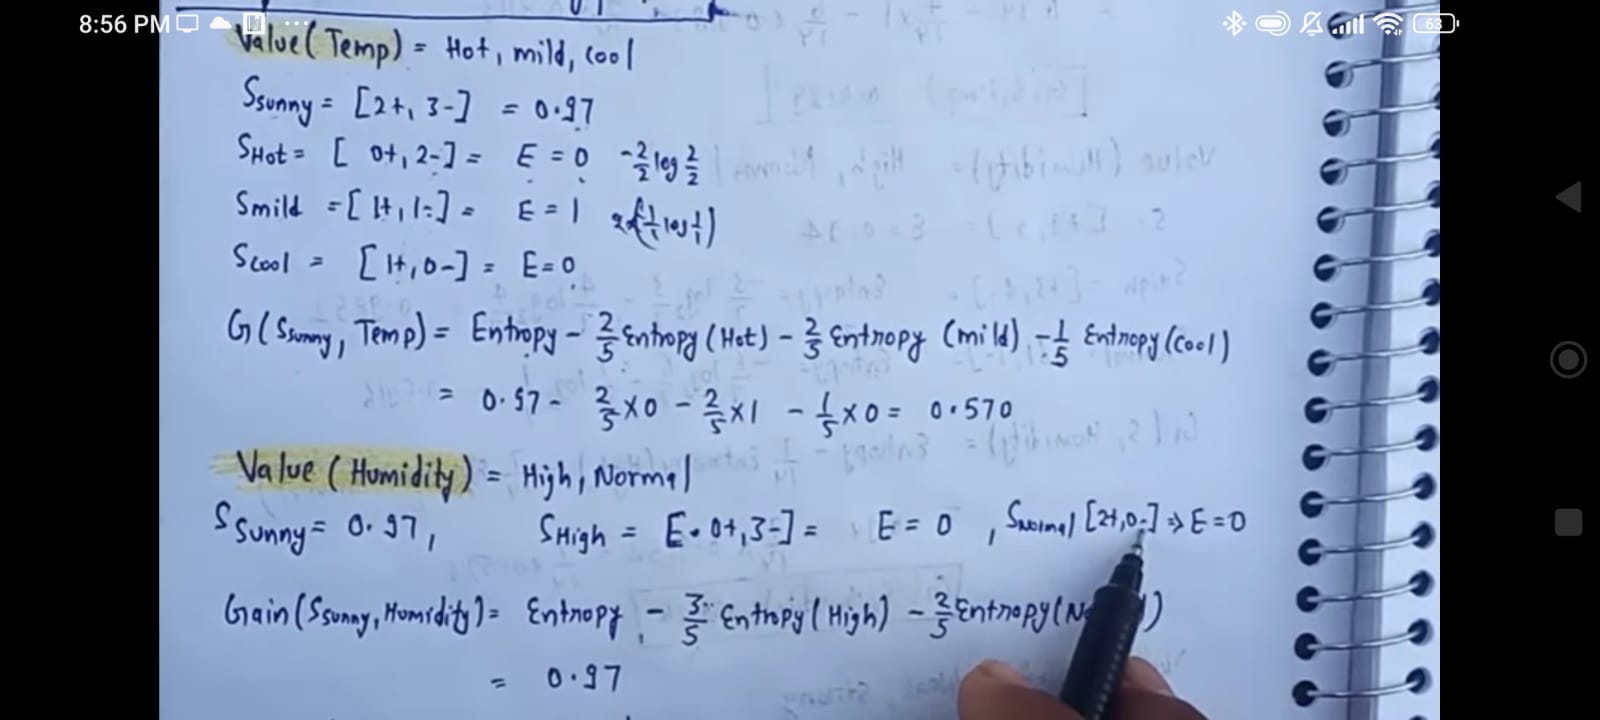 8:56 PM 63
Value(Temp) = Hot, mild, cool
Ssunny = [2+, 3-] = 0.97
SHot = [ 0+, 2-] = E = 0 -2/2 log 2/2
Smild = [ 1+, 1-] = E = 1
Scool = [1+, 0-] = E=0
G(Ssunny, Temp) = Entropy - 2/5 Entropy(Hot) - 2/5 Entropy (mild) - 1/5 Entropy(cool)
= 0.97 - 2/5 x0 - 2/5 x1 - 1/5 x0 = 0.570
Value (Humidity) = High, Normal
Ssunny = 0.97, SHigh = [ 0+, 3-] = E = 0 , SNormal [2+, 0-] => E=0
Gain(Ssunny, Humidity) = Entropy - 3/5 Entropy(High) - 2/5 Entropy(
= 0.97